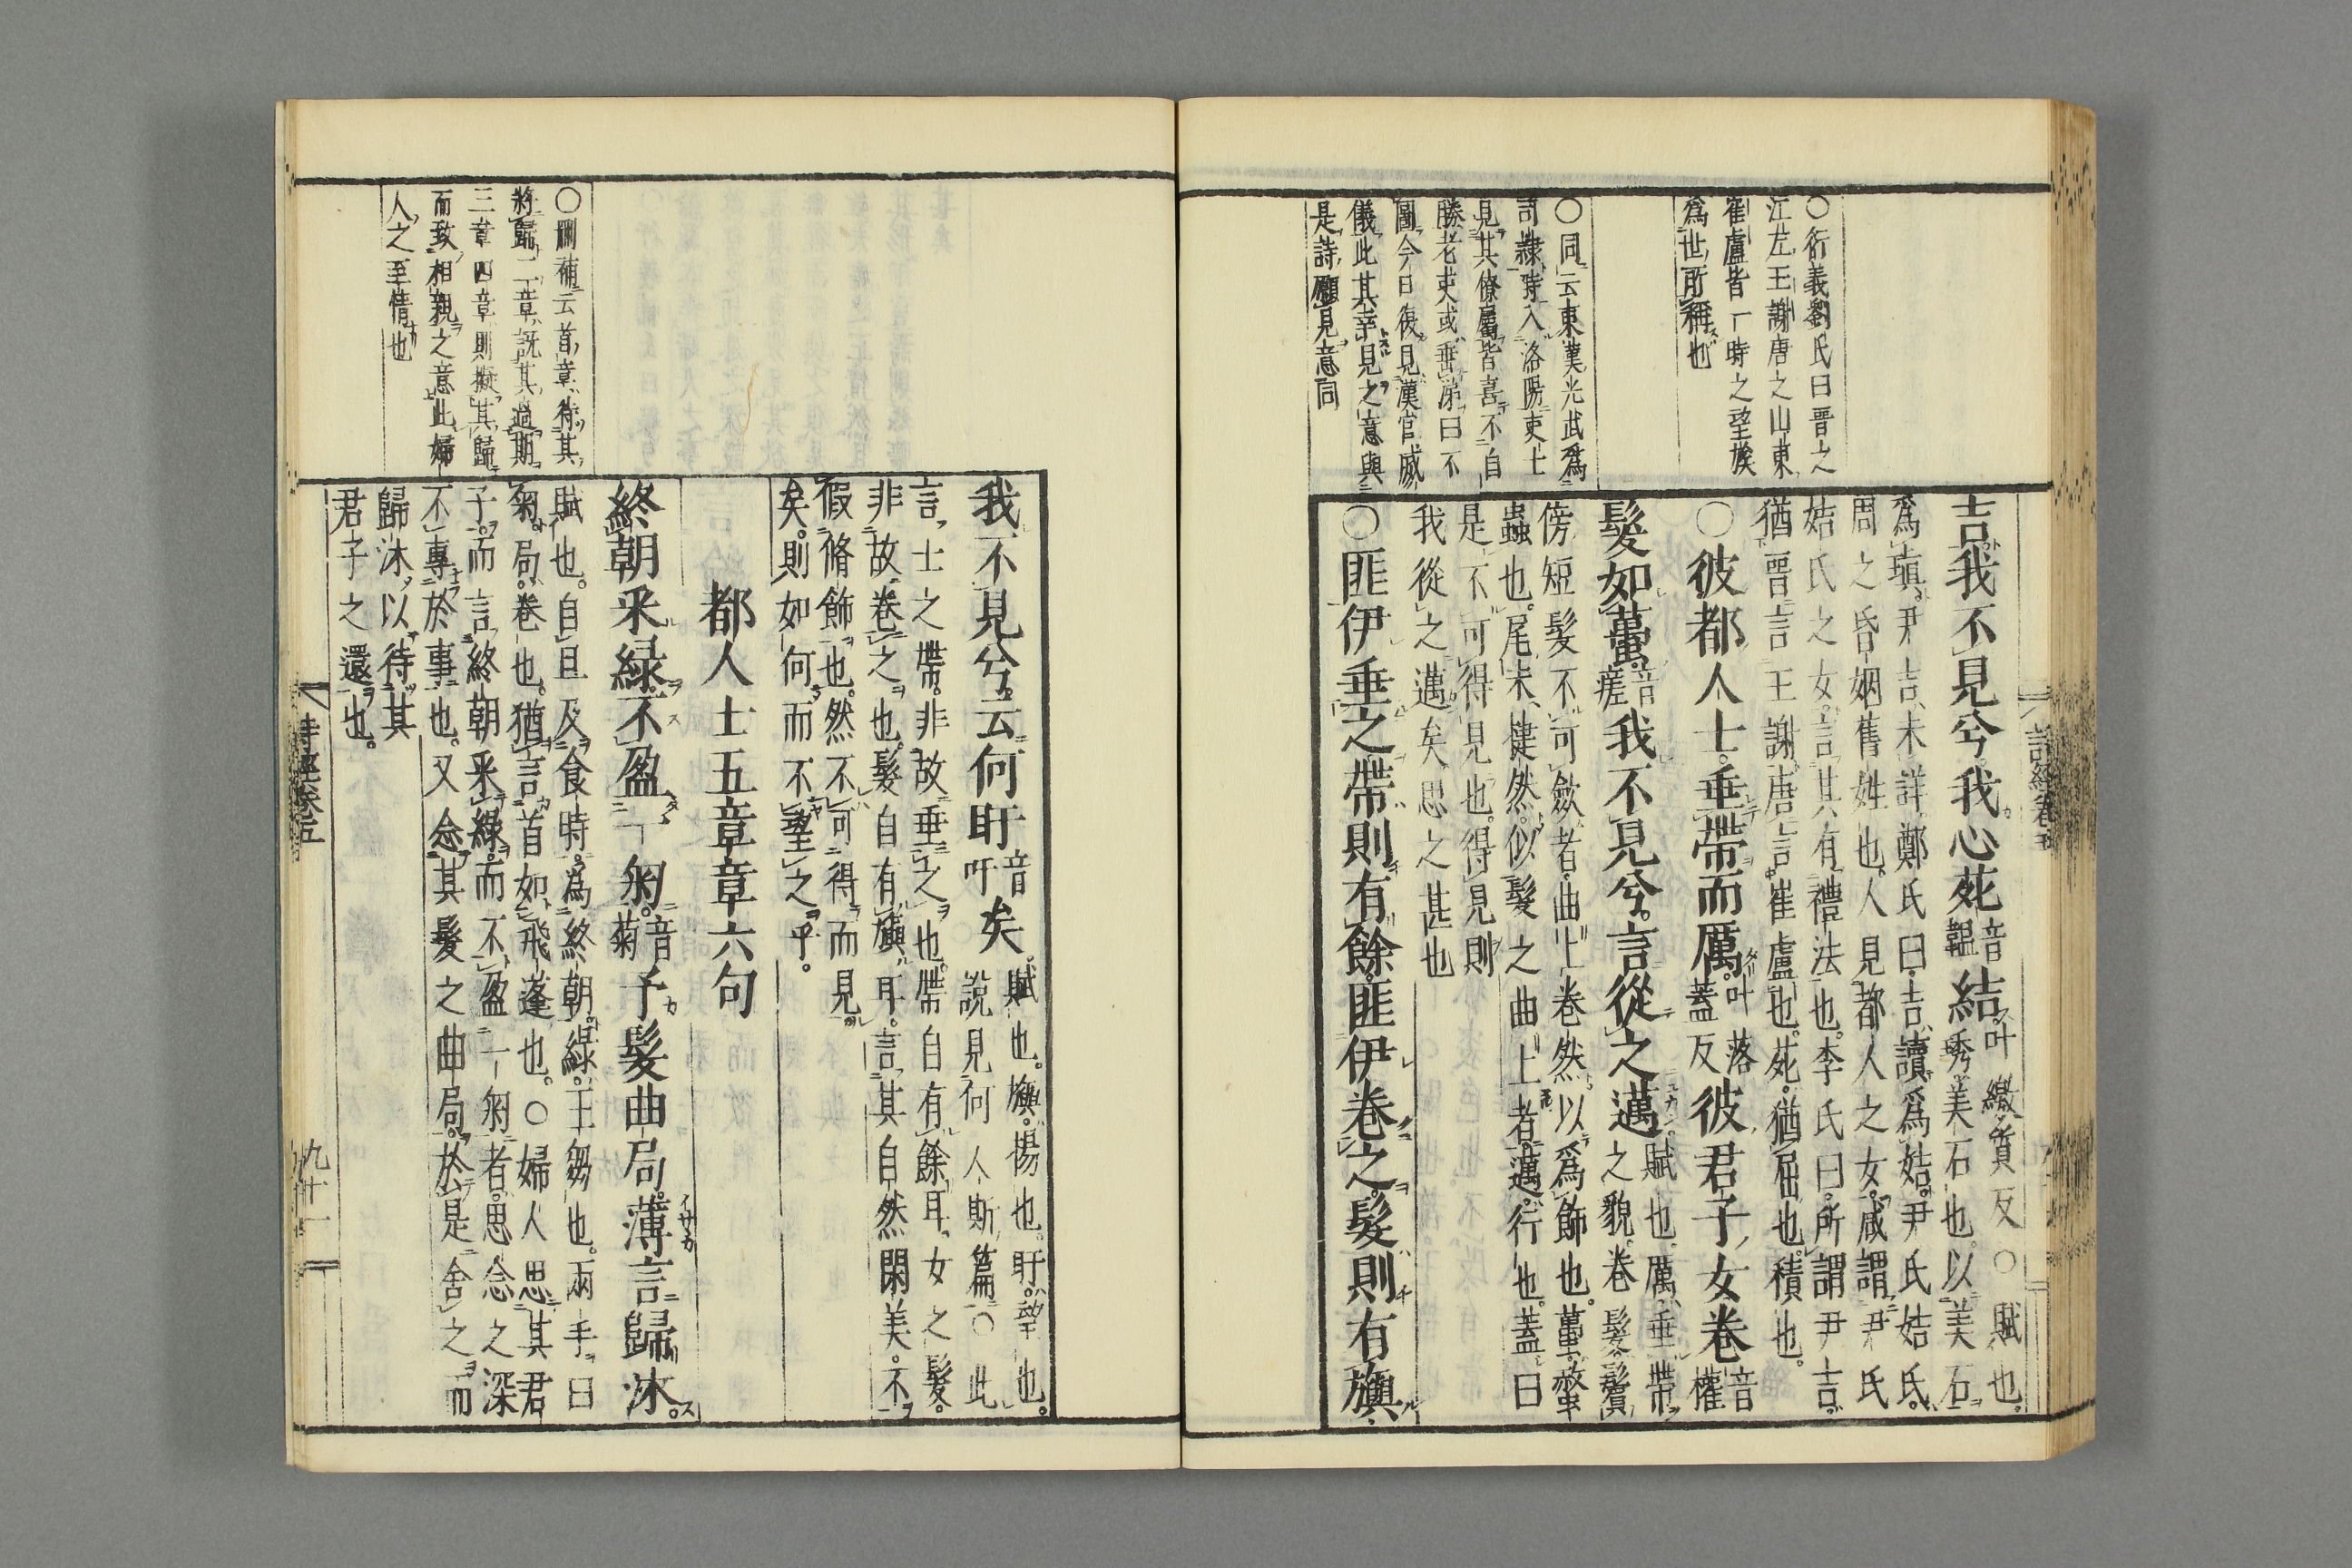 ○衍義劉氏曰晋之
江左王謝唐之山東
崔盧皆一時之望族
為世所稱也
○同云東漢光武為
司隷時入洛陽吏士
見其僚屬皆喜不自
勝老吏或垂涕曰不
圖今日復見漢官威
儀此其幸見之意與
是詩願見意同
吉我不見兮我心苑音韞結叶繳質反○賦也
為瑱尹吉未詳鄭氏曰吉讀為姞尹氏姞氏
周之昏姻舊姓也人見都人之女咸謂尹氏
姞氏之女言其有禮法也李氏曰所謂尹吉
猶晋言王謝唐言崔盧也苑猶屈也積也
○彼都人士垂帶而厲叶落蓋反彼君子女卷音權
髮如蠆音瘥我不見兮言從之邁賦也厲垂帶之貌卷髮鬢
傍短髮不可斂者曲上卷然以為飾也蠆螫
蟲也尾末揵然似髮之曲上者邁行也蓋曰
是不可得見也得見則
我從之邁矣思之甚也
○匪伊垂之帶則有餘匪伊卷之髮則有旟
詩經卷五
我不見兮云何盱音吁矣賦也旟揚也盱望也說見何人斯篇○此
言士之帶非故垂之也帶自有餘耳女之髮
非故卷之也髮自有旟耳言其自然閑美不
假脩飾也然不可得而見
矣則如何而不望之乎
都人士五章章六句
終朝采綠不盈一匊音菊予髮曲局薄言歸沐
賦也自旦及食時為終朝綠王芻也兩手曰
匊局卷也猶言首如飛蓬也○婦人思其君
子而言終朝采綠而不盈一匊者思念之深
不專於事也又念其髮之曲局於是舍之而
歸沐以待其
君子之還也
○刪補云首章待其
將歸二章訝其過期
三章四章則擬其歸
而致相親之意此婦
人之至情也
詩經卷五
九十一